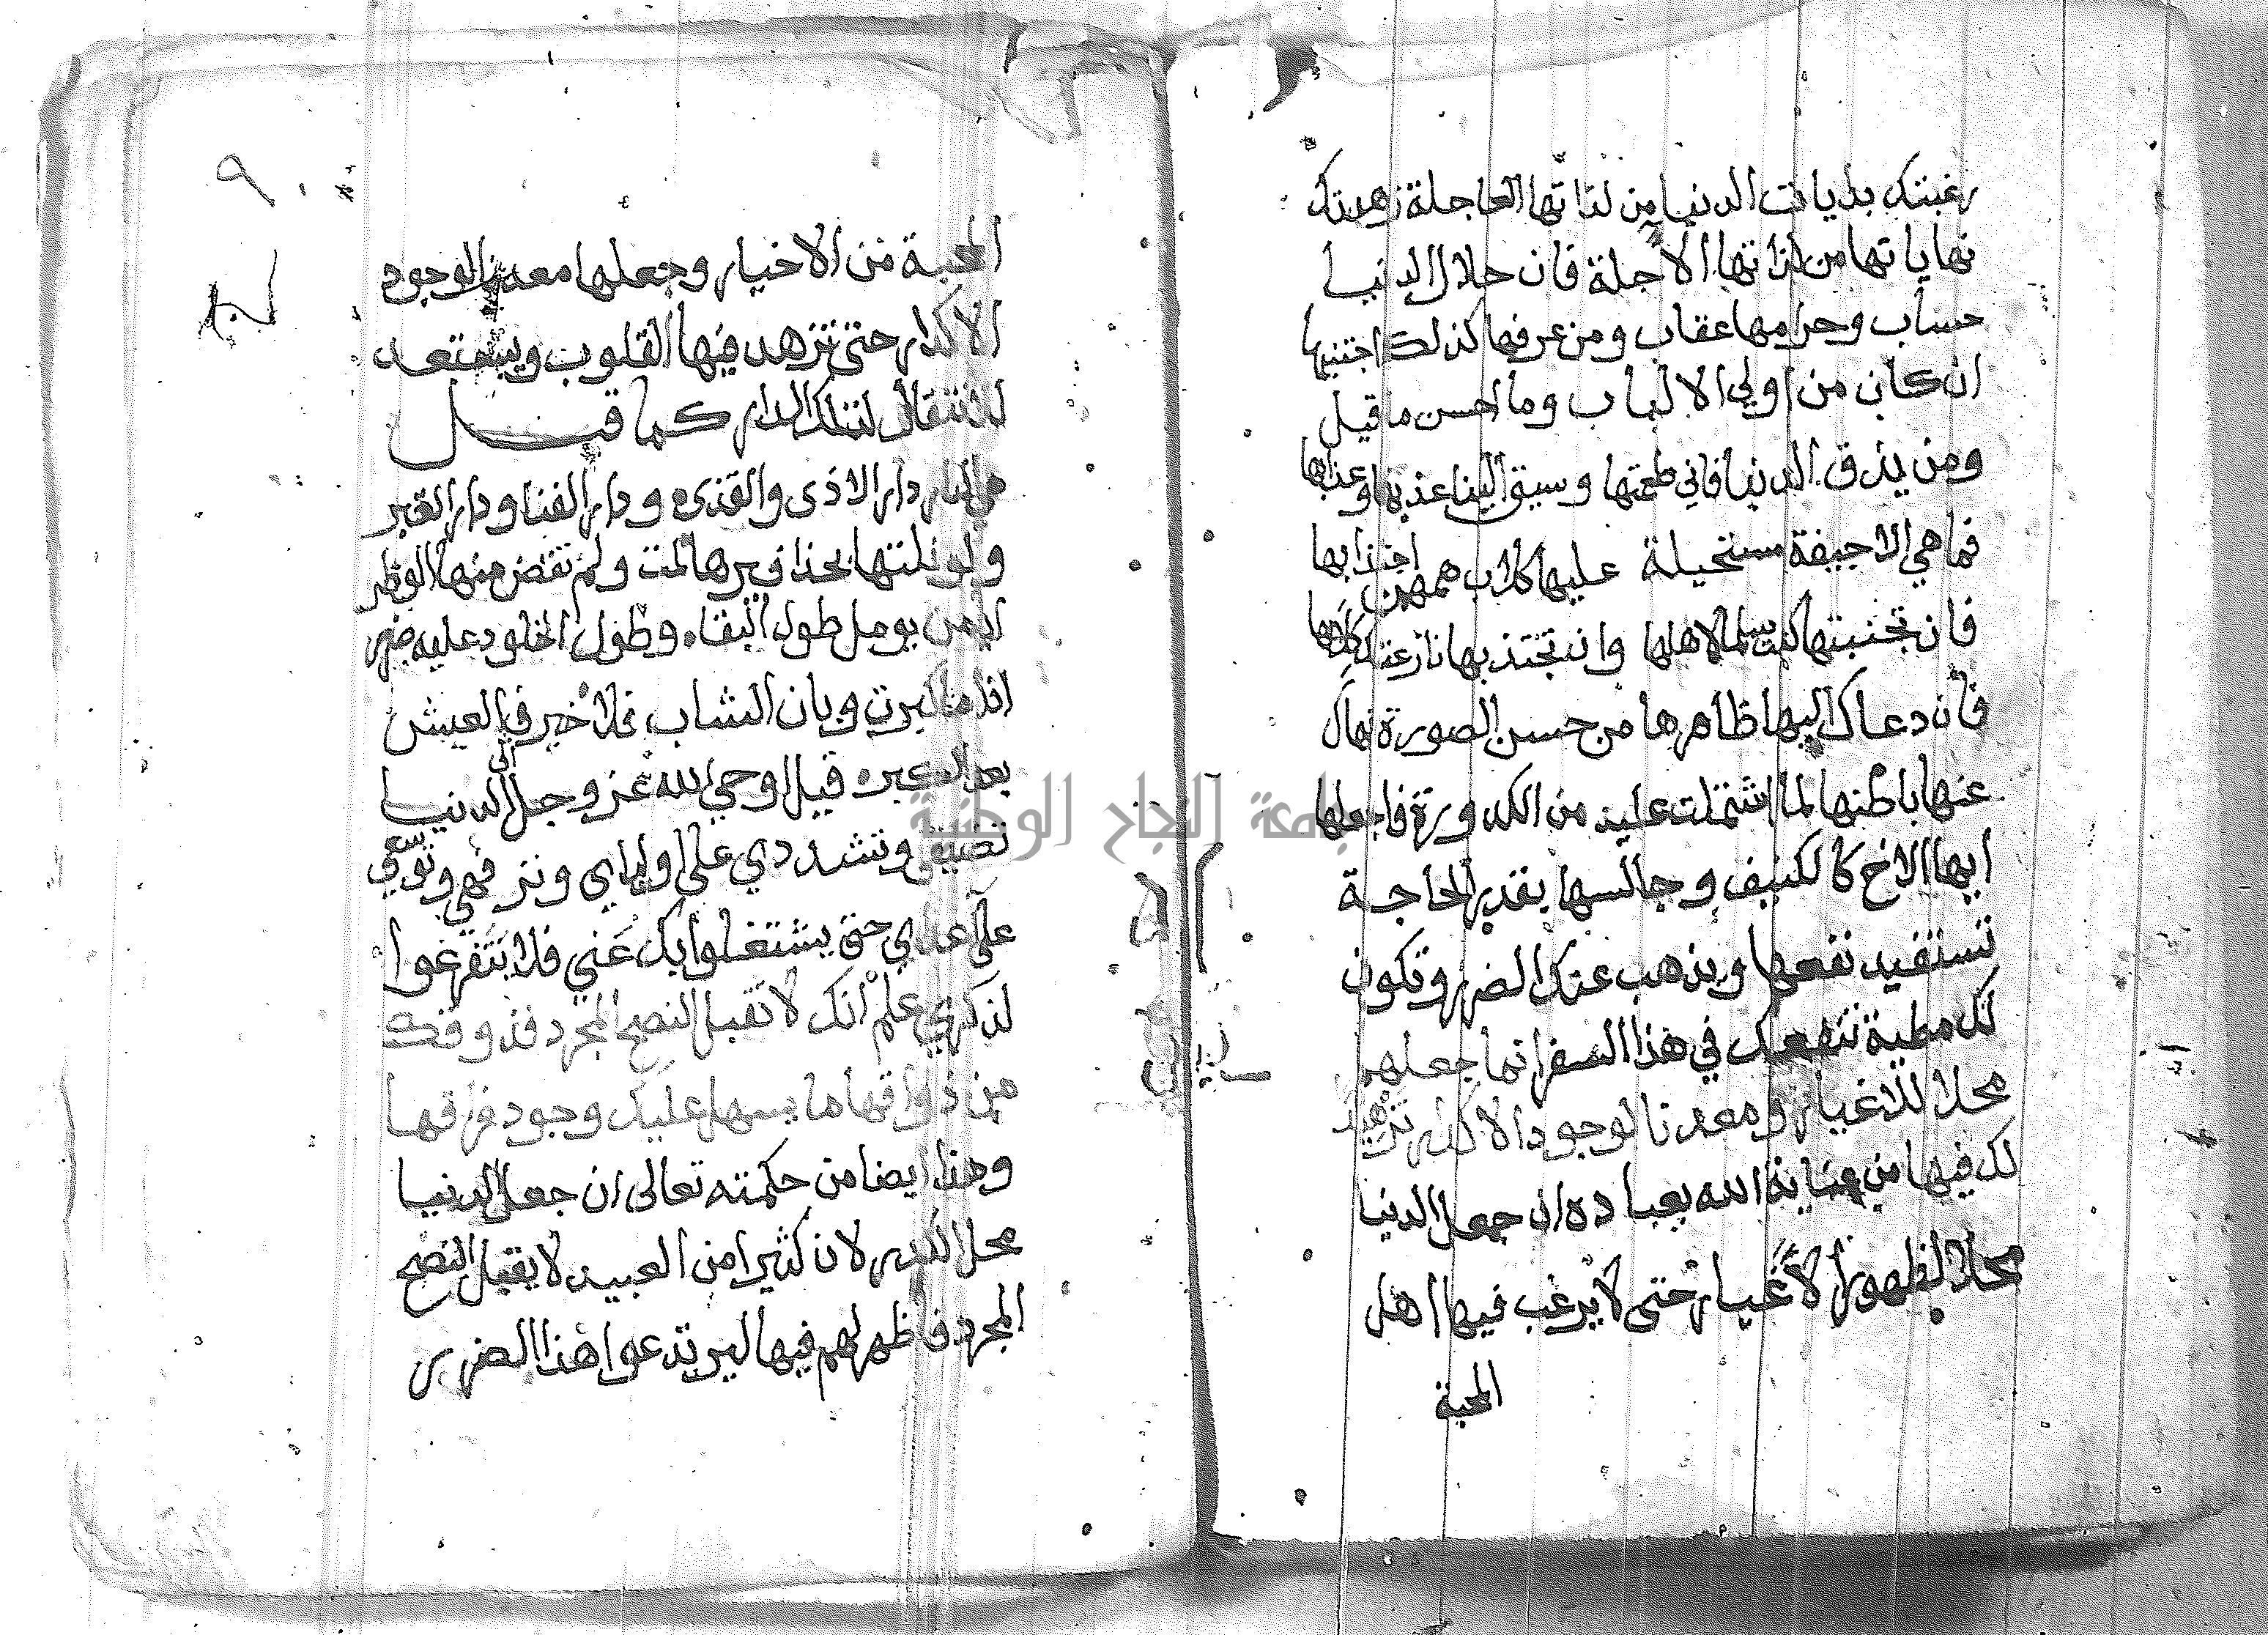 رغبتك بدايات الدنيا من لذاتها العاجلة زهدتك
نهاياتها من لذاتها الاجلة فان حلال الدنيا
حساب وحرامها عقاب ومن عرفها كذلك اجتنبها
ان كان من اولي الالباب وما احسن ما قيل
ومن يذق الدنيا فاني طعمتها وسيق الينا عذبها وعذابها
فما هي الا جيفة مستحيلة عليها كلاب همهن اجتذابها
فان تجتنبتها كنت سلما لاهلها وان تجتذبها نازعتك كلابها
فان دعاك اليها ظاهرها من حسن الصورة نهاك
عنها باطنها لما اشتملت عليه من الكدورة فاجعلها
ايها الاخ كالكنيف وجالسها بقدر الحاجة
تستفيد نفعها ويذهب عنك الضرر وتكون
لك مطية تنفعك في هذا السفر انما جعلها
محلا للاغيار ومعدنا لوجود الاكدار تزهيدا
لك فيها من عناية الله بعباده ان جعل الدنيا
محلا لظهور الاغيار حتى لا يرغب فيها اهل
المحبة
٩
المحبة من الاخيار وجعلها معدنا لوجود
الاكدار حتى تزهد فيها القلوب ويستعد
للانتقال لتلك الدار كما قيل
هي الدار دار الاذى والقذى ودار الفنا ودار الغير
ولو نلتها بحذافيرها لمت ولم تقض منها الوطر
ايا من يومل طول البقاء وطول الخلود عليه ضرر
اذا ما كبرت وبان الشباب فلا خير في العيش
بعد الكبر قيل اوحى الله عز وجل الى الدنيا
تضيقي وتشددي على اولياي وترفهي وتوسعي
على عداي حتى يشتغلوا بك عني فلا يتفرغوا
لذكري علم انك لا تقبل النصح المجرد فذوقك
من ذواقها ما يسهل عليك وجود فراقها
وهذا ايضا من حكمته تعالى ان جعل الدنيا
محل الكدر لان كثيرا من العبيد لا يقبل النصح
المجرد فاظهر لهم فيها ليرتدعوا هذا الضرر
جامعة النجاح الوطنية